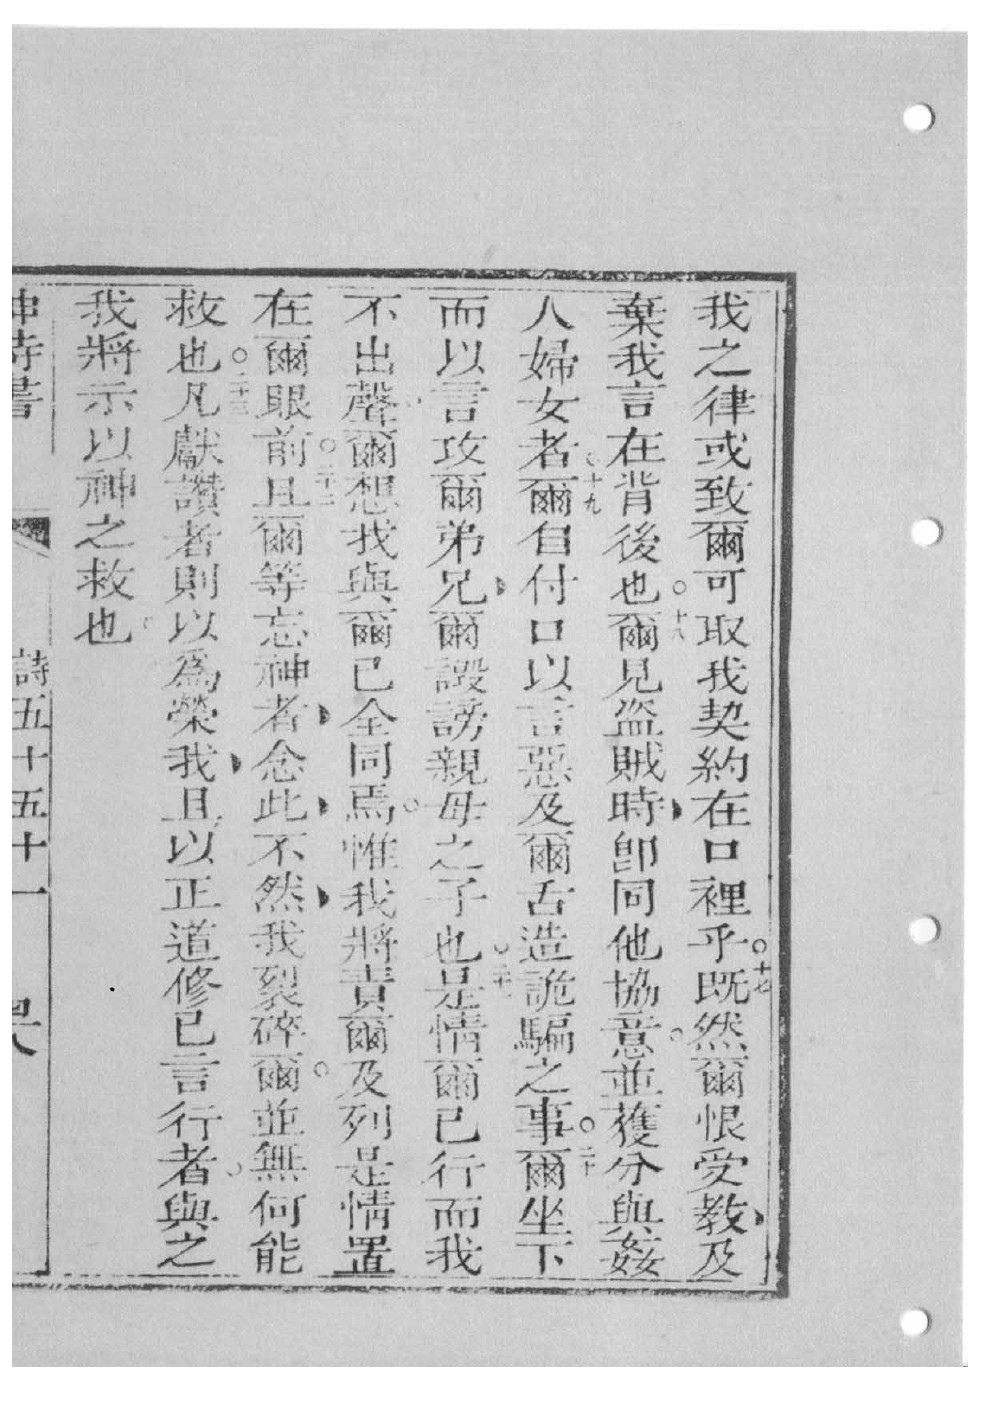 我之律或致爾可取我契約在口裡乎○十七既然爾恨受教及
棄我言在背後也○十八爾見盜賊時卽同他協意○並獲分與姦
人婦女者○十九爾自付口以言惡及爾舌造詭騙之事○二十爾坐下
而以言攻爾弟兄爾譭謗親母之子也○是情爾已行而我
不出聲爾想我與爾已全同焉○惟我將責爾及列是情置
在爾眼前○二十二且爾等忘神者念此不然我裂碎爾○並無何能
救也○二十三凡獻讚者則以為榮我且以正道修已言行者與之
我將示以神之救也
神詩書 詩五十五十一